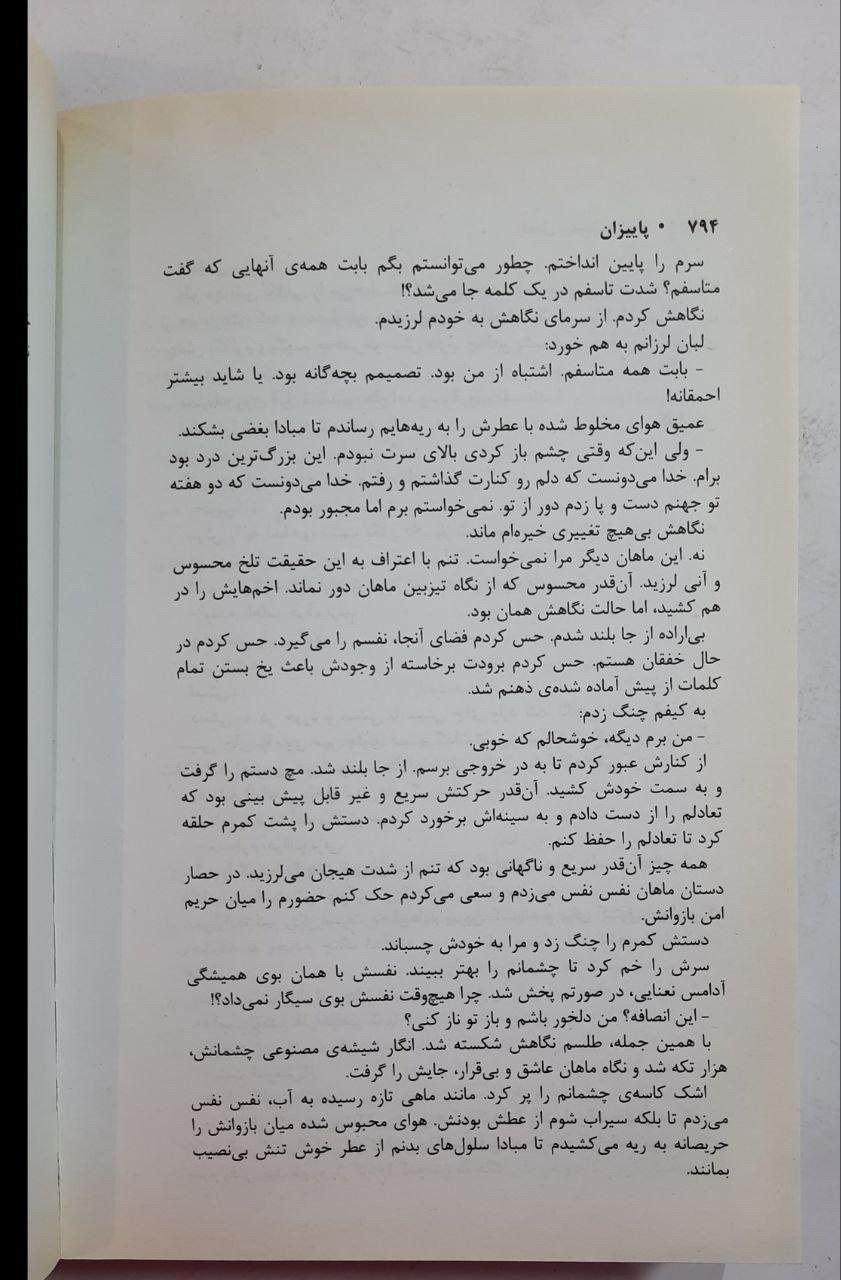 ۷۹۴ • پاییزان
سرم را پایین انداختم. چطور می‌توانستم بگم بابت همه‌ی آنهایی که گفت
متاسفم؟ شدت تاسفم در یک کلمه جا می‌شد؟!
نگاهش کردم. از سرمای نگاهش به خودم لرزیدم.
لبان لرزانم به هم خورد:
- بابت همه متاسفم. اشتباه از من بود. تصمیمم بچه‌گانه بود. یا شاید بیشتر
احمقانه!
عمیق هوای مخلوط شده با عطرش را به ریه‌هایم رساندم تا مبادا بغضی بشکند.
- ولی این‌که وقتی چشم باز کردی بالای سرت نبودم. این بزرگ‌ترین درد بود
برام. خدا می‌دونست که دلم رو کنارت گذاشتم و رفتم. خدا می‌دونست که دو هفته
تو جهنم دست و پا زدم دور از تو. نمی‌خواستم برم اما مجبور بودم.
نگاهش بی‌هیچ تغییری خیره‌ام ماند.
نه. این ماهان دیگر مرا نمی‌خواست. تنم با اعتراف به این حقیقت تلخ محسوس
و آنی لرزید. آن‌قدر محسوس که از نگاه تیزبین ماهان دور نماند. اخم‌هایش را در
هم کشید، اما حالت نگاهش همان بود.
بی‌اراده از جا بلند شدم. حس کردم فضای آنجا، نفسم را می‌گیرد. حس کردم در
حال خفقان هستم. حس کردم برودت برخاسته از وجودش باعث یخ بستن تمام
کلمات از پیش آماده شده‌ی ذهنم شد.
به کیفم چنگ زدم:
- من برم دیگه، خوشحالم که خوبی.
از کنارش عبور کردم تا به در خروجی برسم. از جا بلند شد. مچ دستم را گرفت
و به سمت خودش کشید. آن‌قدر حرکتش سریع و غیر قابل پیش بینی بود که
تعادلم را از دست دادم و به سینه‌اش برخورد کردم. دستش را پشت کمرم حلقه
کرد تا تعادلم را حفظ کنم.
همه چیز آن‌قدر سریع و ناگهانی بود که تنم از شدت هیجان می‌لرزید. در حصار
دستان ماهان نفس نفس می‌زدم و سعی می‌کردم حک کنم حضورم را میان حریم
امن بازوانش.
دستش کمرم را چنگ زد و مرا به خودش چسباند.
سرش را خم کرد تا چشمانم را بهتر ببیند. نفسش با همان بوی همیشگی
آدامس نعنایی، در صورتم پخش شد. چرا هیچ‌وقت نفسش بوی سیگار نمی‌داد؟!
- این انصافه؟ من دلخور باشم و باز تو ناز کنی؟
با همین جمله، طلسم نگاهش شکسته شد. انگار شیشه‌ی مصنوعی چشمانش،
هزار تکه شد و نگاه ماهان عاشق و بی‌قرار، جایش را گرفت.
اشک کاسه‌ی چشمانم را پر کرد. مانند ماهی تازه رسیده به آب، نفس نفس
می‌زدم تا بلکه سیراب شوم از عطش بودنش. هوای محبوس شده میان بازوانش را
حریصانه به ریه می‌کشیدم تا مبادا سلول‌های بدنم از عطر خوش تنش بی‌نصیب
بمانند.